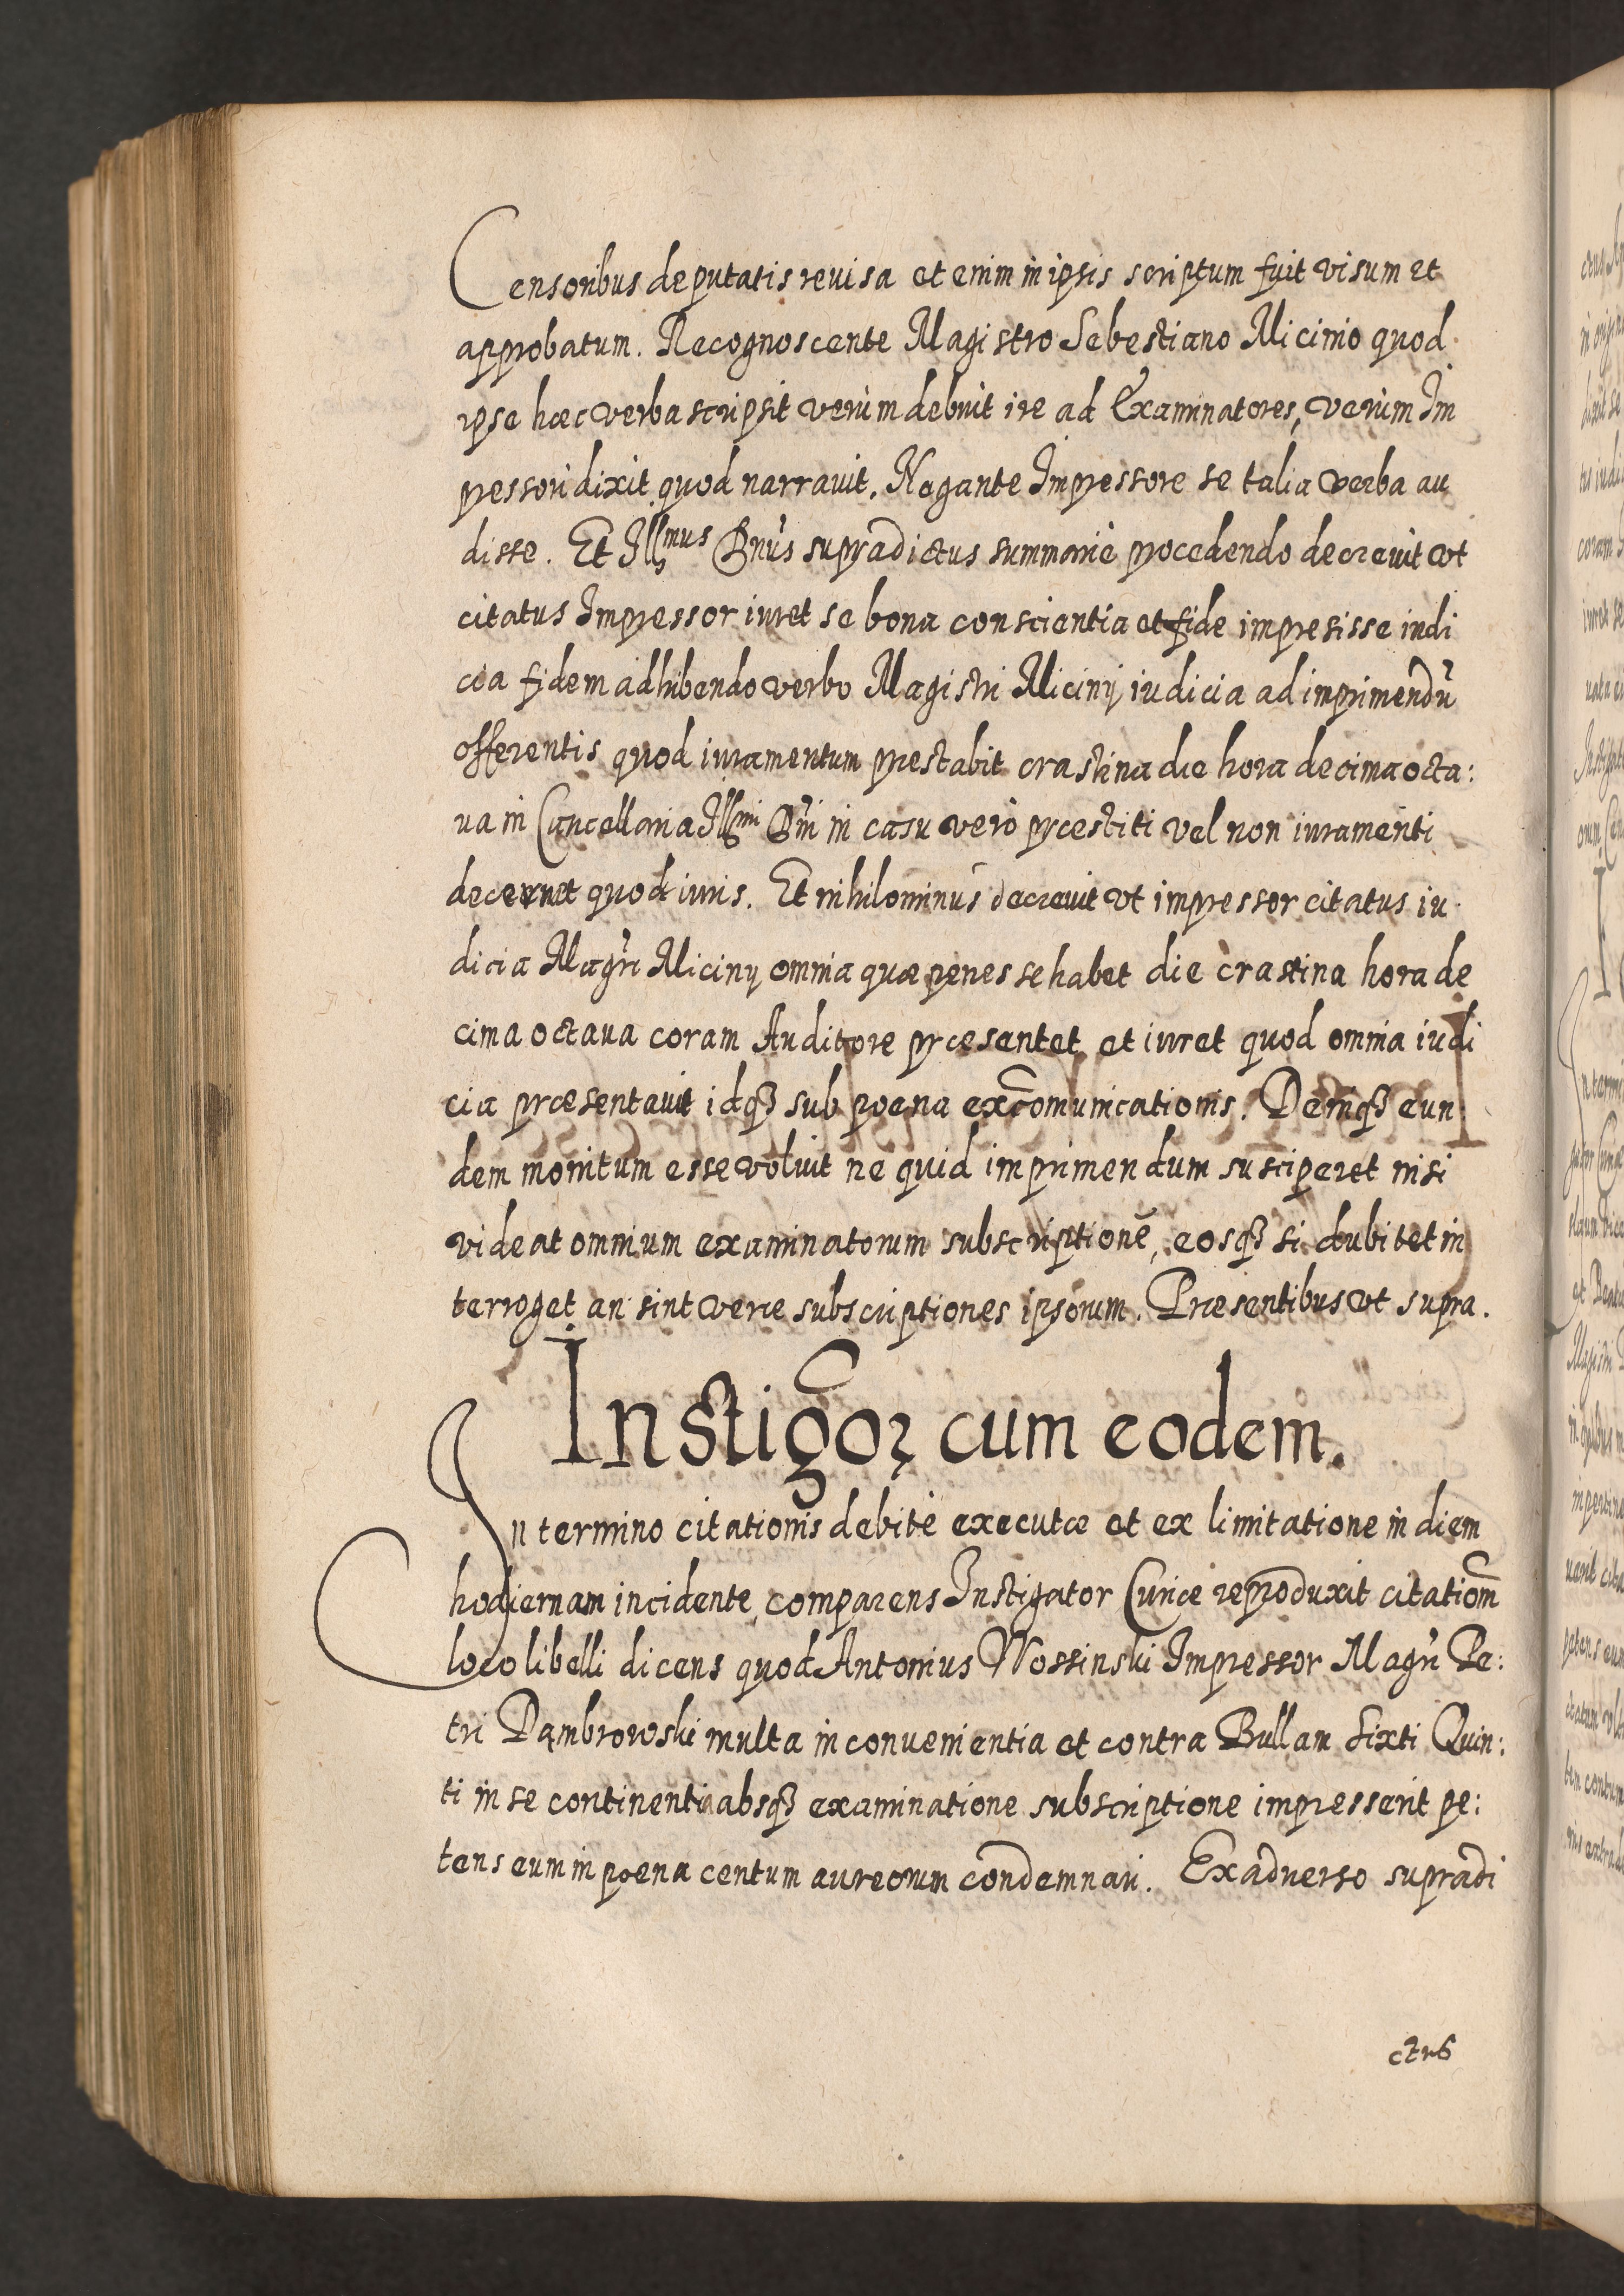 Censoribus deputatis reuisa et enim in ipsis scriptum fuit visum et
approbatum. Recognoscente Magistro Sebestiano Micinio quod
ipse hæc verba scripsit verùm debuit ire ad Examinatores, verùm Im
pressori dixit quod narrauit. Negante Impressore se talia verba au
disse. Et Illmus Dnus supradictus summariè procedendo decreuit vt
citatus Impressor iuret se bona conscientia et fide impresisse indi
cia fidem adhibendo verbo Magistri Miciny iudicia ad imprimendū
offerentis quod iuramentum prestabit crastina die hora decima octa:
ua in Cancellaria Illmi Dni in casu verò præstiti vel non iuramenti
decernet quod iuris. Et nihilominus decreuit vt impressor citatus iu
dicia Magri Miciny omnia quæ penes se habet die crastina hora de
cima octaua coram Auditore præsentet et iuret quod omnia iudi
cia præsentauit idq3 sub poena excōmunicationis. Deniq3 eun
dem monitum esse voluit ne quid imprimendum susciperet nisi
videat omnium examinatorum subscriptionē, eosq3 si dubitet in
terroget an sint veræ subscriptiones ipsorum. Præsentibus vt supra.
Instigor cum eodem.
In termino citationis debitè executæ et ex limitatione in diem
hodiernam incidente comparens Instigator Curiæ reproduxit citationē
loco libelli dicens quod Antonius Wossinski Impressor Magri Pe:
tri Dąmbrowski multa inconuenientia et contra Bullam Sixti Quin:
ti in se continentia absq3 examinatione subscriptione impresserit pe:
tens eum in poena centum aureorum condemnari. Ex aduerso supradi
ctus